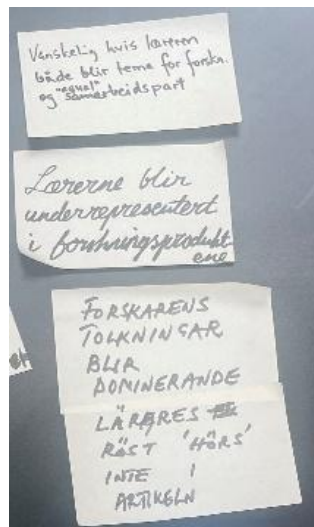 Vanskelig hvis læreren
både blir tema for forskn.
og "equal" samarbeidspart
Lærerne blir
underrepresentert
i forskningsprodukt
ene
FORSKARENS
TOLKNINGAR
BLIR
DOMINERANDE
LÄRARES
RÖST 'HÖRS'
INTE I
ARTIKELN